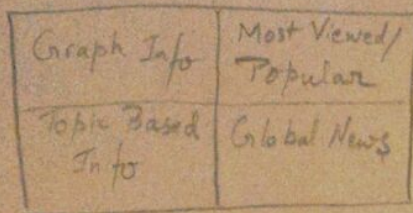 Graph Info
Most Viewed/
Popular
Topic Based
Info
Global News